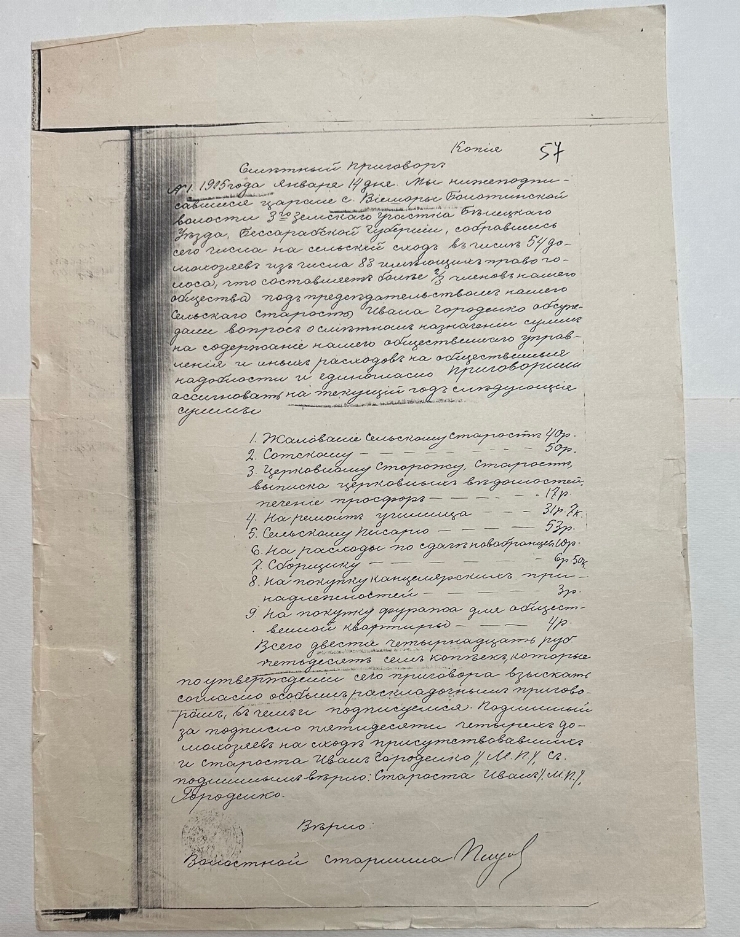 Копія 57
Смѣтный приговоръ
№1. 1905 года января 14 дня. Мы нижеподпи-
савшіеся царане с. Болотинской
волости 3го Земскаго участка Бѣлецкаго
Уѣзда, Бессарабской Губерніи, собравшись
сего числа на сельскій сходъ въ числѣ 54 до-
мохозяевъ изъ числа 83 имѣющихъ право го-
лоса, что составляетъ болѣе 2/3 членовъ нашего
общества подъ предсѣдательствомъ нашего
Сельскаго Старосты Ивана Городенко обсуж-
дали вопросъ о смѣтномъ назначеніи суммъ
на содержаніе нашего общественнаго управ-
ленія и иныхъ расходовъ на общественныя
надобности и единогласно приговорили
ассигновать на текущій годъ слѣдующія
суммы
1. Жалованіе Сельскому Старостѣ 40р.
2. Сотскому — — — — — 50р.
3. Церковному Сторожу, Старостѣ,
выписка церковныхъ вѣдомостей,
печеніе просфоръ — — — — 17р.
4. На ремонтъ училища — — — 31р 7к.
5. Сельскому Писарю — — — — 53р.
6. На расходы по сдачѣ новобранцевъ 10р.
7. Сборщику — — — — — 6р 50к
8. На покупку канцелярскихъ при-
надлежностей — — — — 3р.
9. На покупку фуража для общест-
венной квартиры — — — — 4р.
Всего двести четырнадцать руб
пятьдесятъ семь копѣекъ, которые
по утвержденіи сего приговора взыскать
согласно особымъ раскладочнымъ пригово-
ромъ, въ чемъ и подписуемся. Подлинный
за подписью пятидесяти четырехъ до-
мохозяевъ на сходѣ присутствовавшихъ
и староста Иванъ Городенко /М.П./, съ
подлиннымъ вѣрно: Староста Иванъ /М.П./
Городенко.
Вѣрно:
Волостной старшина